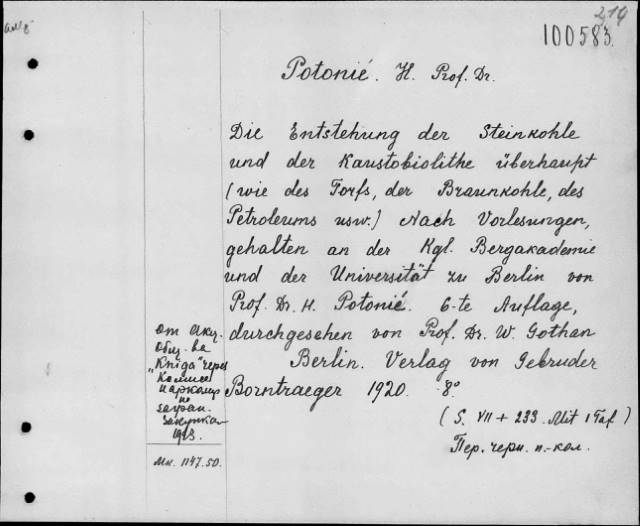 214
100583.
Potonié. H. Prof. Dr.
Die Entstehung der Steinkohle
und der Kaustobiolithe überhaupt
(wie des Torfs, der Braunkohle, des
Petroleums usw.) Nach Vorlesungen,
gehalten an der Kgl. Bergakademie
und der Universität zu Berlin von
Prof. Dr. H. Potonié. 6-te Auflage,
durchgesehen von Prof. Dr. W. Gothan
Berlin. Verlag von Gebruder
Borntraeger 1920. 8°
(S. VII + 233. Mit 1 Taf.)
Пер. черн. п.-кол.
от Акц.
Общ-ва
„Kniga" через
Комисс
по
загран.
закупкам
1923.
Мк. 1147.50.